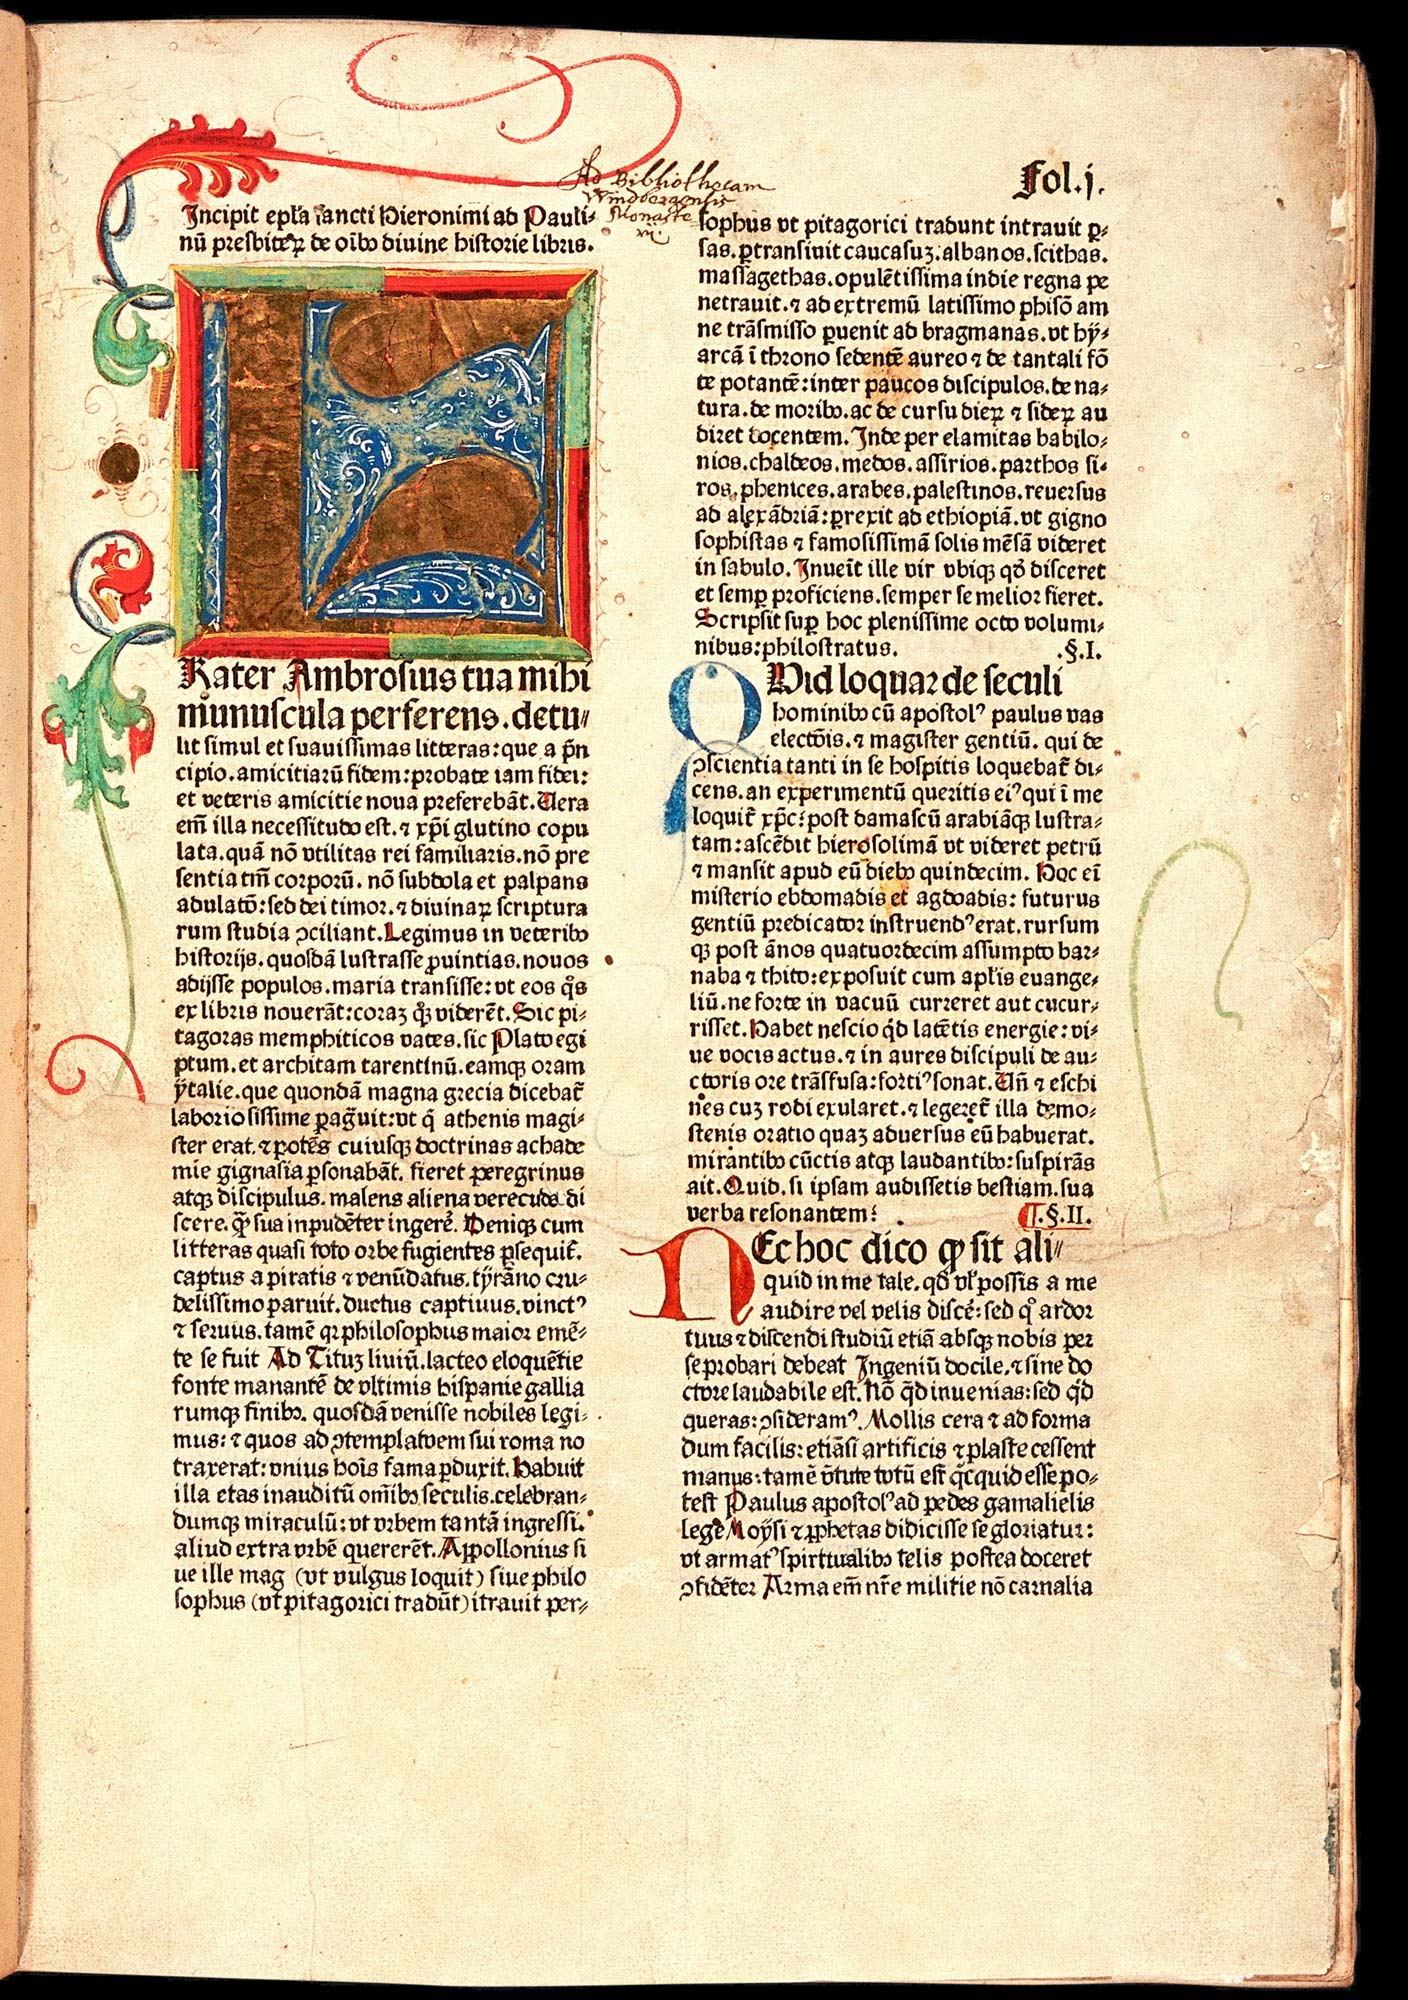 Fol.j.
Ad Bibliothecam
Windbergensis
Monaste-
rij.
Incipit epl̃a sancti Hieronimi ad Pauli-
nū presbiteꝝ de oībꝰ divine historie libris.
F
Rater Ambrosius tua mihi
munuscula perferens. detu-
lit simul et suauissimas litteras: que a p̄n
cipio. amicitiarū fidem: probate iam fidei:
et veteris amicitie noua preferebāt. Uera
em̄ illa necessitudo est. ⁊ xp̄i glutino copu
lata. quā nō vtilitas rei familiaris. nō pre
sentia tm̄ corporū. nō subdola et palpans
adulatō: sed dei timor. ⁊ divinaꝝ scriptura
rum studia ↄciliant. Legimus in veteribꝰ
historijs. quosdā lustrasse ꝓuintias. nouos
adijsse populos. maria transisse: vt eos q̄s
ex libris nouerāt: coraꝫ qͦꝫ viderēt. Sic pi-
tagoras memphiticos vates. sic Plato egi
ptum. et architam tarentinū. eamqꝫ oram
ÿtalie. que quondā magna grecia dicebat̄
laboriosissime ꝑag̃uit: vt q̄ athenis magi-
ster erat. ⁊ potēs cuiusqꝫ doctrinas achade
mie gignasia ꝑsonabāt. fieret ꝑegrinus
atqꝫ discipulus. malens aliena verecude di
scere. qͣꝫ sua inpudēter ingerē. Deniqꝫ cum
litteras quasi toto orbe fugientes ꝑsequit̄.
captus a piratis ⁊ venūdatus. tÿrāno cru-
delissimo paruit. ductus captiuus. vinctꝰ
⁊ seruus. tamē qꝛ philosophus maior emē-
te se fuit Ad Tituꝫ liviū. lacteo eloquētie
fonte manantē de vltimis hispanie gallia
rumqꝫ finibꝰ. quosdā venisse nobiles legi-
mus: ⁊ quos ad ↄtemplatōem sui roma no
traxerat: vnius hoīs fama ꝑduxit. Habuit
illa etas inauditū om̄ibꝰ seculis. celebran-
dumqꝫ miraculū: vt vrbem tantā ingressi.
aliud extra vrbē quererēt. Appollonius si
ue ille mag (vt vulgus loquit) siue philo
sophus (vt pitagorici tradūt) itrauit per-
sophus vt pitagorici tradunt intrauit ꝑ-
sas. ꝑtransiuit caucasuꝫ. albanos. scithas.
massagethas. opulētissima indie regna pe
netrauit. ⁊ ad extremū latissimo phisō am
ne trāsmisso ꝑuenit ad bragmanas. vt hÿ-
arcā ī throno sedentē aureo ⁊ de tantali fō
te potantē: inter paucos discipulos. de na-
tura. de moribꝰ. ac de cursu dieꝝ ⁊ sideꝝ au
diret docentem. Inde per elamitas babilo-
nios. chaldeos. medos. assirios. parthos si-
ros. phenices. arabes. palestinos. reuersus
ad alexādriā: ꝑrexit ad ethiopiā. vt gigno
sophistas ⁊ famosissimā solis mēsā videret
in sabulo. Inueīt ille vir vbiqꝫ qd̄ disceret
et semꝑ proficiens. semper se melior fieret.
Scripsit suꝑ hoc plenissime octo volumi-
nibus: philostratus. .§.I.
QVid loquar de seculi
hominibꝰ cū apostolꝰ paulus vas
electōis. ⁊ magister gentiū. qui de
ↄscientia tanti in se hospitis loquebat̄ di-
cens. an experimentū queritis eiꝰ qui ī me
loquit̄ xp̄c: post damascū arabiāqꝫ lustra-
tam: ascēdit hierosolimā vt videret petrū
⁊ mansit apud eū diebꝰ quindecim. Hoc eī
misterio ebdomadis et agdoadis: futurus
gentiū predicator instruendꝰ erat. rursum
qꝫ post ānos quatuordecim assumpto bar-
naba ⁊ thito: exposuit cum apl̄is euange-
liū. ne forte in vacuū curreret aut cucur-
risset. Habet nescio qd̄ latētis energie: vi-
ue vocis actus. ⁊ in aures discipuli de au-
ctoris ore trāsfusa: fortiꝰ sonat. Un̄ ⁊ eschi
nes cuꝫ rodi exularet. ⁊ legeret̄ illa demo-
stenis oratio quaꝫ aduersus eū habuerat.
mirantibꝰ cūctis atqꝫ laudantibꝰ: suspirās
ait. Quid. si ipsam audissetis bestiam. sua
verba resonantem: ¶.§.II.
NEc hoc dico ꝙ sit ali-
quid in me tale. qd̄ vl̓ possis a me
audire vel velis discē: sed qͦ ardor
tuus ⁊ discendi studiū etiā absqꝫ nobis per
se probari debeat Ingeniū docile. ⁊ sine do
ctore laudabile est. Nō qd̄ inuenias: sed qd̄
queras: ↄsideramꝰ. Mollis cera ⁊ ad forma
dum facilis: etiāsi artificis ⁊ plaste cessent
manus: tamē v̄tute totū est q̄cquid esse po-
test Paulus apostolꝰ ad pedes gamalielis
legē Moÿsi ⁊ ꝓphetas didicisse se gloriatur:
vt armatꝰ spiritualibꝰ telis postea doceret
ↄfidēter Arma em̄ nr̄e militie nō carnalia